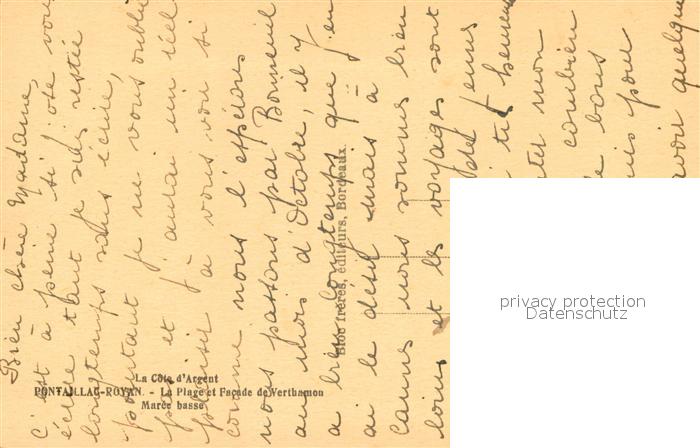 Bien chère Madame,
c'est à peine si j'ose vous
écrire tant je suis restée
longtemps sans écrire,
pourtant je ne vous oublie
pas et j'aurai un réel
plaisir à vous voir si
comme nous l'espérons
nous passons par Bonneuil
au mois d'Octobre, il y
a bien longtemps que j'en
ai le désir mais à
Cannes nous sommes bien
loins et les voyages sont
combien
de bons
pour
avoir quelque
La Côte d'Argent
PONTAILLAC-ROYAN. - La Plage et Façade de Verthamon
Marée basse
Bloc frères, éditeurs, Bordeaux.
privacy protection
Datenschutz